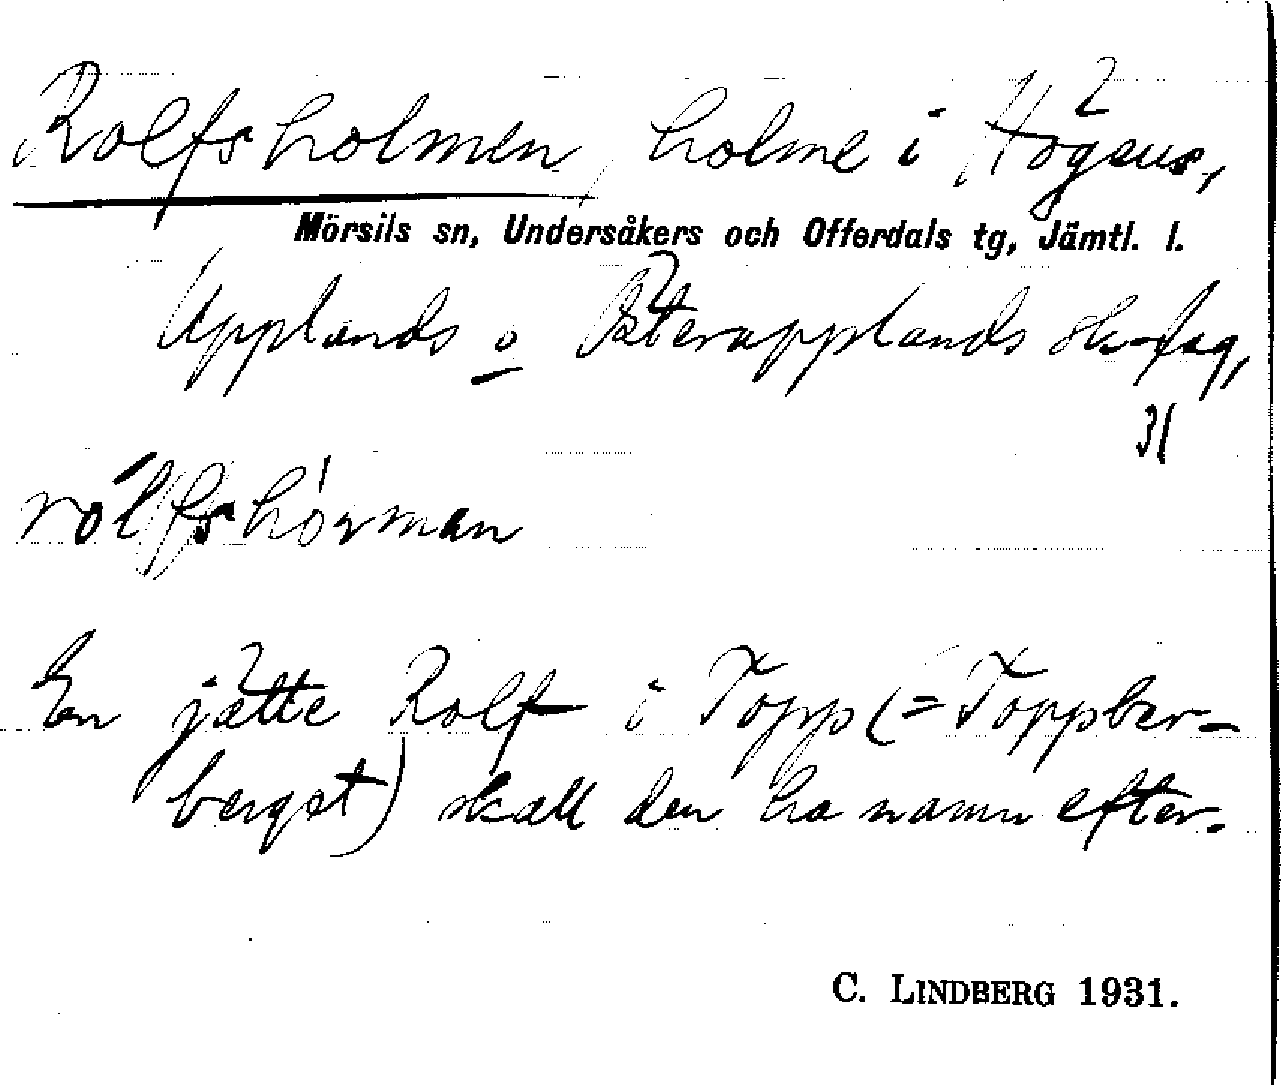 Rolfsholmen, holme i Högsus,
Mörsils sn, Undersåkers och Offerdals tg, Jämtl. l.
Upplands o Österupplands sk-lag,
31
En jätte Rolf i Topp (= Toppber-
berget) skall den ha namn efter.
C. LINDBERG 1931.